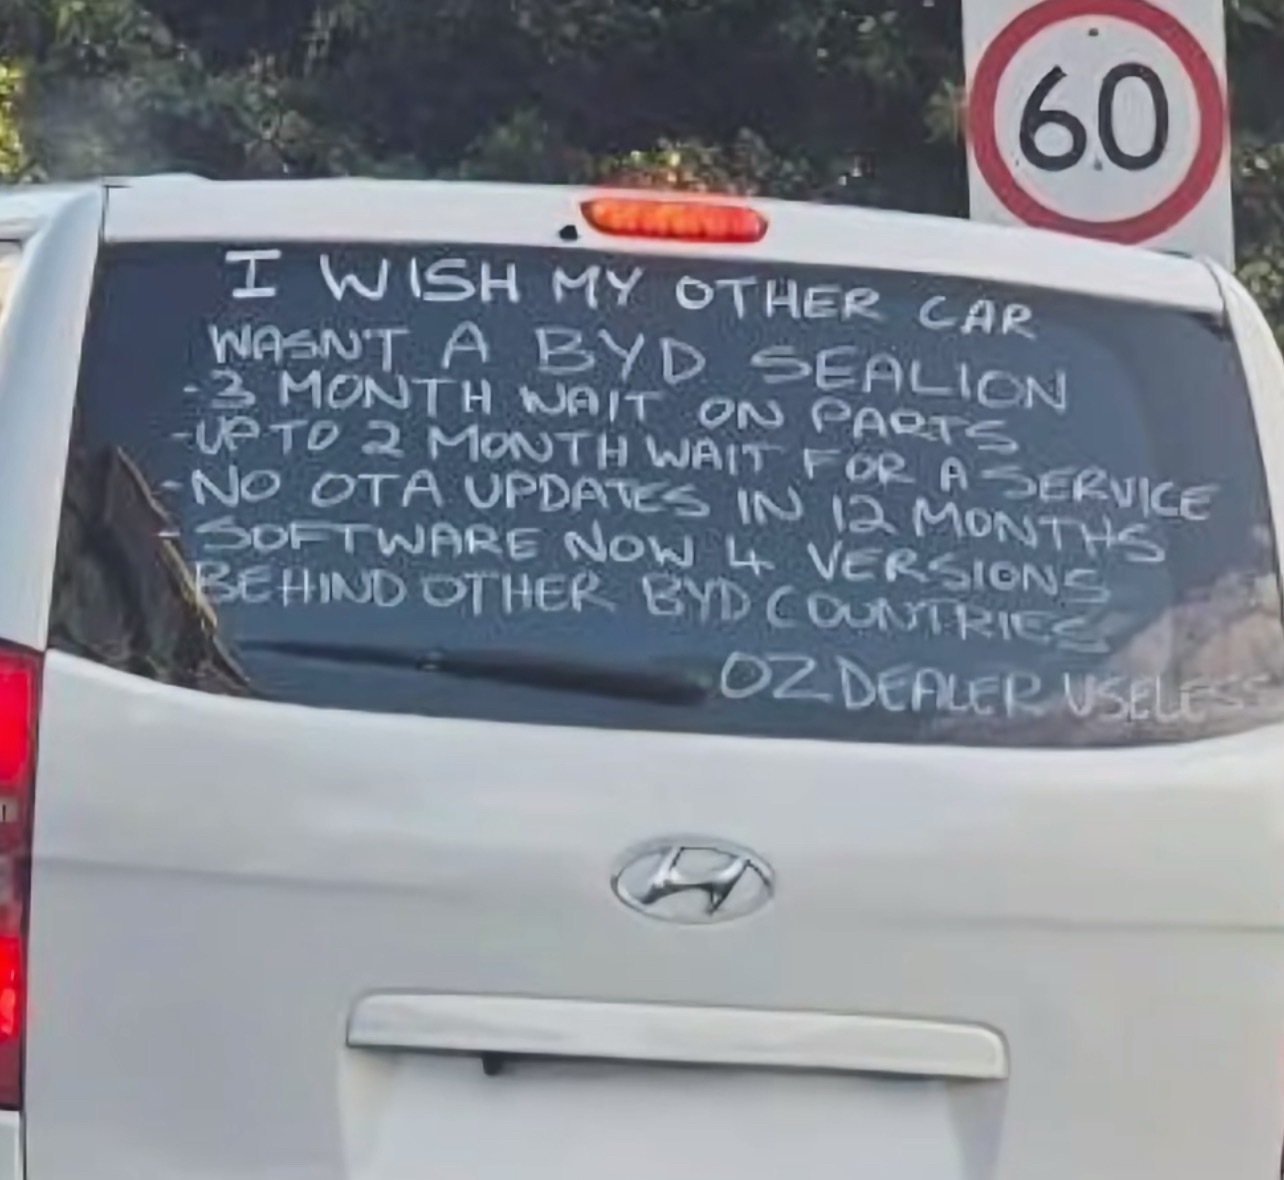 60
I WISH MY OTHER CAR
WASNT A BYD SEALION
-3 MONTH WAIT ON PARTS
-UP TO 2 MONTH WAIT FOR A SERVICE
-NO OTA UPDATES IN 12 MONTHS
- SOFTWARE NOW 4 VERSIONS
BEHIND OTHER BYD COUNTRIES
OZ DEALER USELESS